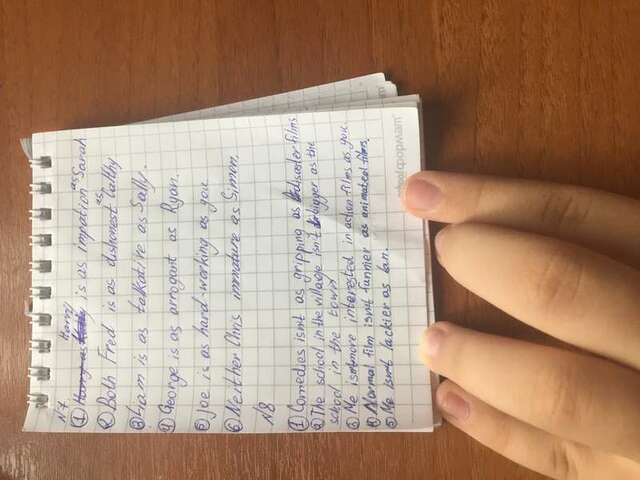 N7
① Harry is as impation as Sarah
② Both Fred is as dishonest as Cathy
③ Liam is as talkative as Sally.
④ George is as arrogant as Ryan.
⑤ Joe is as hard-working as you
⑥ Neither Chris immature as Simon.
N8
① Comedies isn't as gripping as disaster films
② The school in the village isn't bigger as the
school in the town
③ Me isn't more interested in action films as you.
④ Normal film isn't funnier as animated films
⑤ Me isn't luckier as Ian.
формат